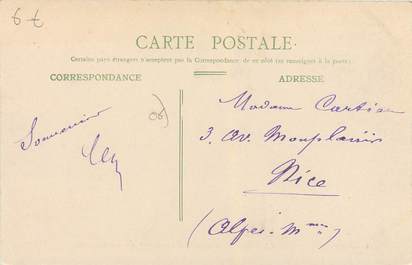 6 €
CARTE POSTALE
Certains pays étrangers n'acceptent pas la Correspondance de ce côté (se renseigner à la poste).
CORRESPONDANCE
ADRESSE
Souvenir
Madame Cartier
3, av. Monplaisir
Nice
(Alpes-Mmes)